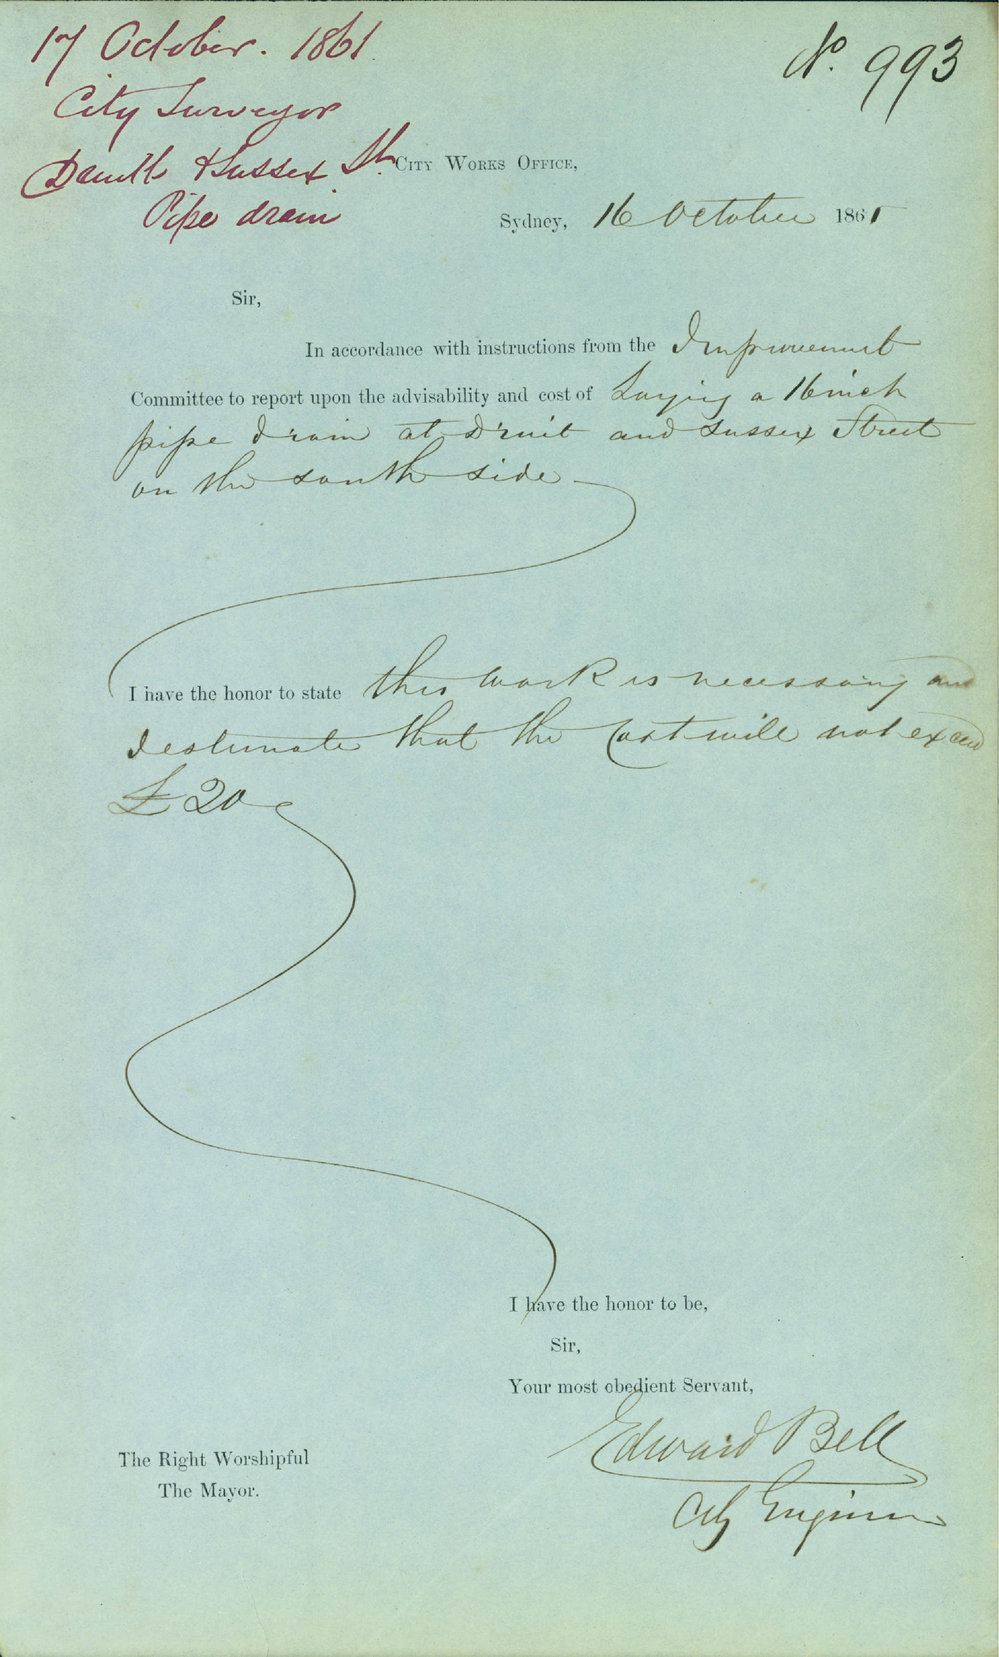 17 October. 1861
City Surveyor
Druitt & Sussex Sts.
Pipe drain
No. 993
City Works Office,
Sydney, 16 October 1861
Sir,
In accordance with instructions from the Improvement
Committee to report upon the advisability and cost of Laying a 16 inch
pipe drain at Druit and Sussex Street
on the south side
I have the honor to state this work is necessary and
I estimate that the Cost will not exceed
£20
I have the honor to be,
Sir,
Your most obedient Servant,
Edward Bell
City Engineer
The Right Worshipful
The Mayor.